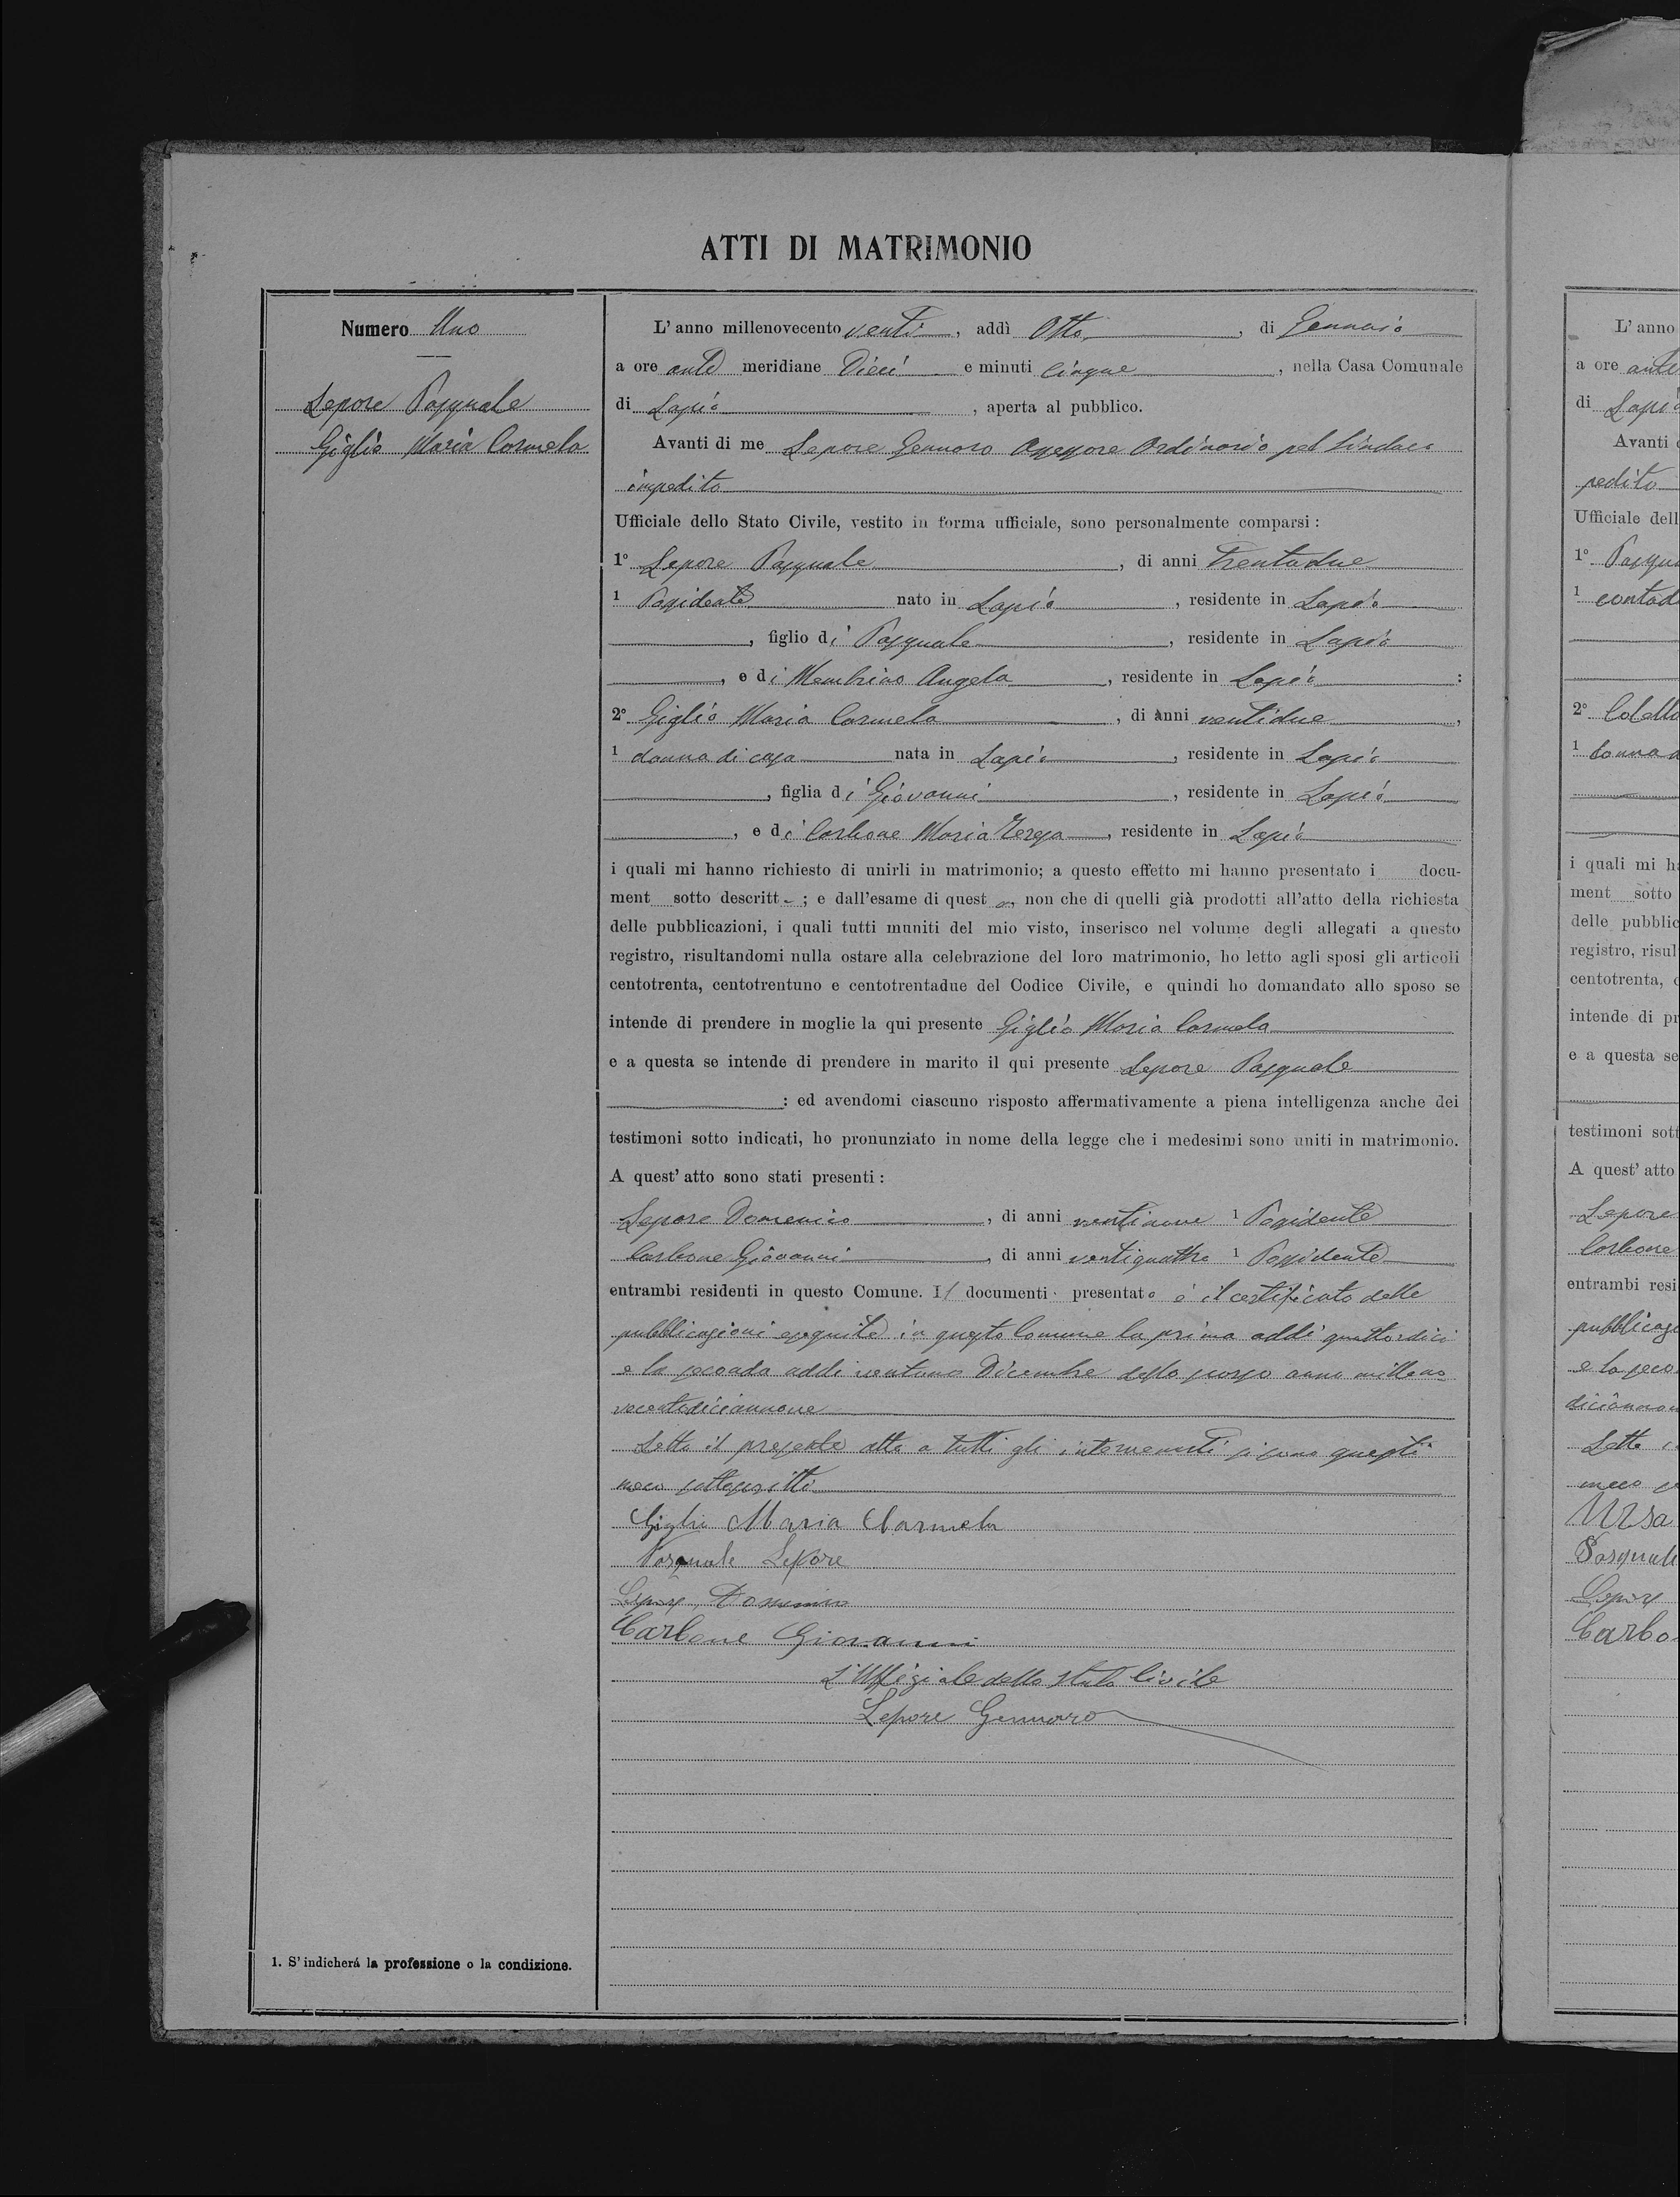 ATTI DI MATRIMONIO
Numero Uno
Lepore Pasquale
Giglio Maria Carmela
1. S'indicherá la professione o la condizione.
L'anno millenovecento venti, addì Otto, di Gennaio
a ore ante meridiane Dieci e minuti cinque, nella Casa Comunale
di Lapio, aperta al pubblico.
Avanti di me Lepore Gennaro Assessore Ordinario pel Sindaco
impedito
Ufficiale dello Stato Civile, vestito in forma ufficiale, sono personalmente comparsi:
1° Lepore Pasquale, di anni Trentadue
1 Possidente nato in Lapio, residente in Lapio
, figlio di Pasquale, residente in Lapio
, e di Membrino Angela, residente in Lapio:
2° Giglio Maria Carmela, di anni ventidue,
1 donna di casa nata in Lapio, residente in Lapio
, figlia di Giovanni, residente in Lapio
, e di Carbone Maria Teresa, residente in Lapio
i quali mi hanno richiesto di unirli in matrimonio; a questo effetto mi hanno presentato i docu-
ment sotto descritt; e dall'esame di quest, non che di quelli già prodotti all'atto della richiesta
delle pubblicazioni, i quali tutti muniti del mio visto, inserisco nel volume degli allegati a questo
registro, risultandomi nulla ostare alla celebrazione del loro matrimonio, ho letto agli sposi gli articoli
centotrenta, centotrentuno e centotrentadue del Codice Civile, e quindi ho domandato allo sposo se
intende di prendere in moglie la qui presente Giglio Maria Carmela
e a questa se intende di prendere in marito il qui presente Lepore Pasquale
: ed avendomi ciascuno risposto affermativamente a piena intelligenza anche dei
testimoni sotto indicati, ho pronunziato in nome della legge che i medesimi sono uniti in matrimonio.
A quest'atto sono stati presenti:
Lepore Domenico, di anni ventinove 1 Possidente
Carbone Giovanni, di anni ventiquattro 1 Possidente
entrambi residenti in questo Comune. Il documenti presentato è il certificato delle
pubblicazioni eseguite in questo Comune la prima addì quattordici
e la seconda addì ventuno Dicembre dello scorso anno milleno
vecentodiciannove
Letto il presente atto a tutti gli intervenuti si sono questi
meco sottoscritti
Giglio Maria Carmela
Pasquale Lepore
Lepore Domenico
Carbone Giovanni
L'Uffiziale dello Stato Civile
Lepore Gennaro
L'anno
a ore ante
di Lapio
Avanti
pedito
Ufficiale dell
1° Pasqu
1 contad
2° Colella
1 donna
i quali mi h
ment sotto
delle pubblic
registro, risul
centotrenta,
intende di pr
e a questa se
testimoni sott
A quest'atto
Lepore
Carbone
entrambi resi
pubblicaz
e la seco
diciannov
Letto
meco
Ursa
Pasquale
Lepore
Carbo